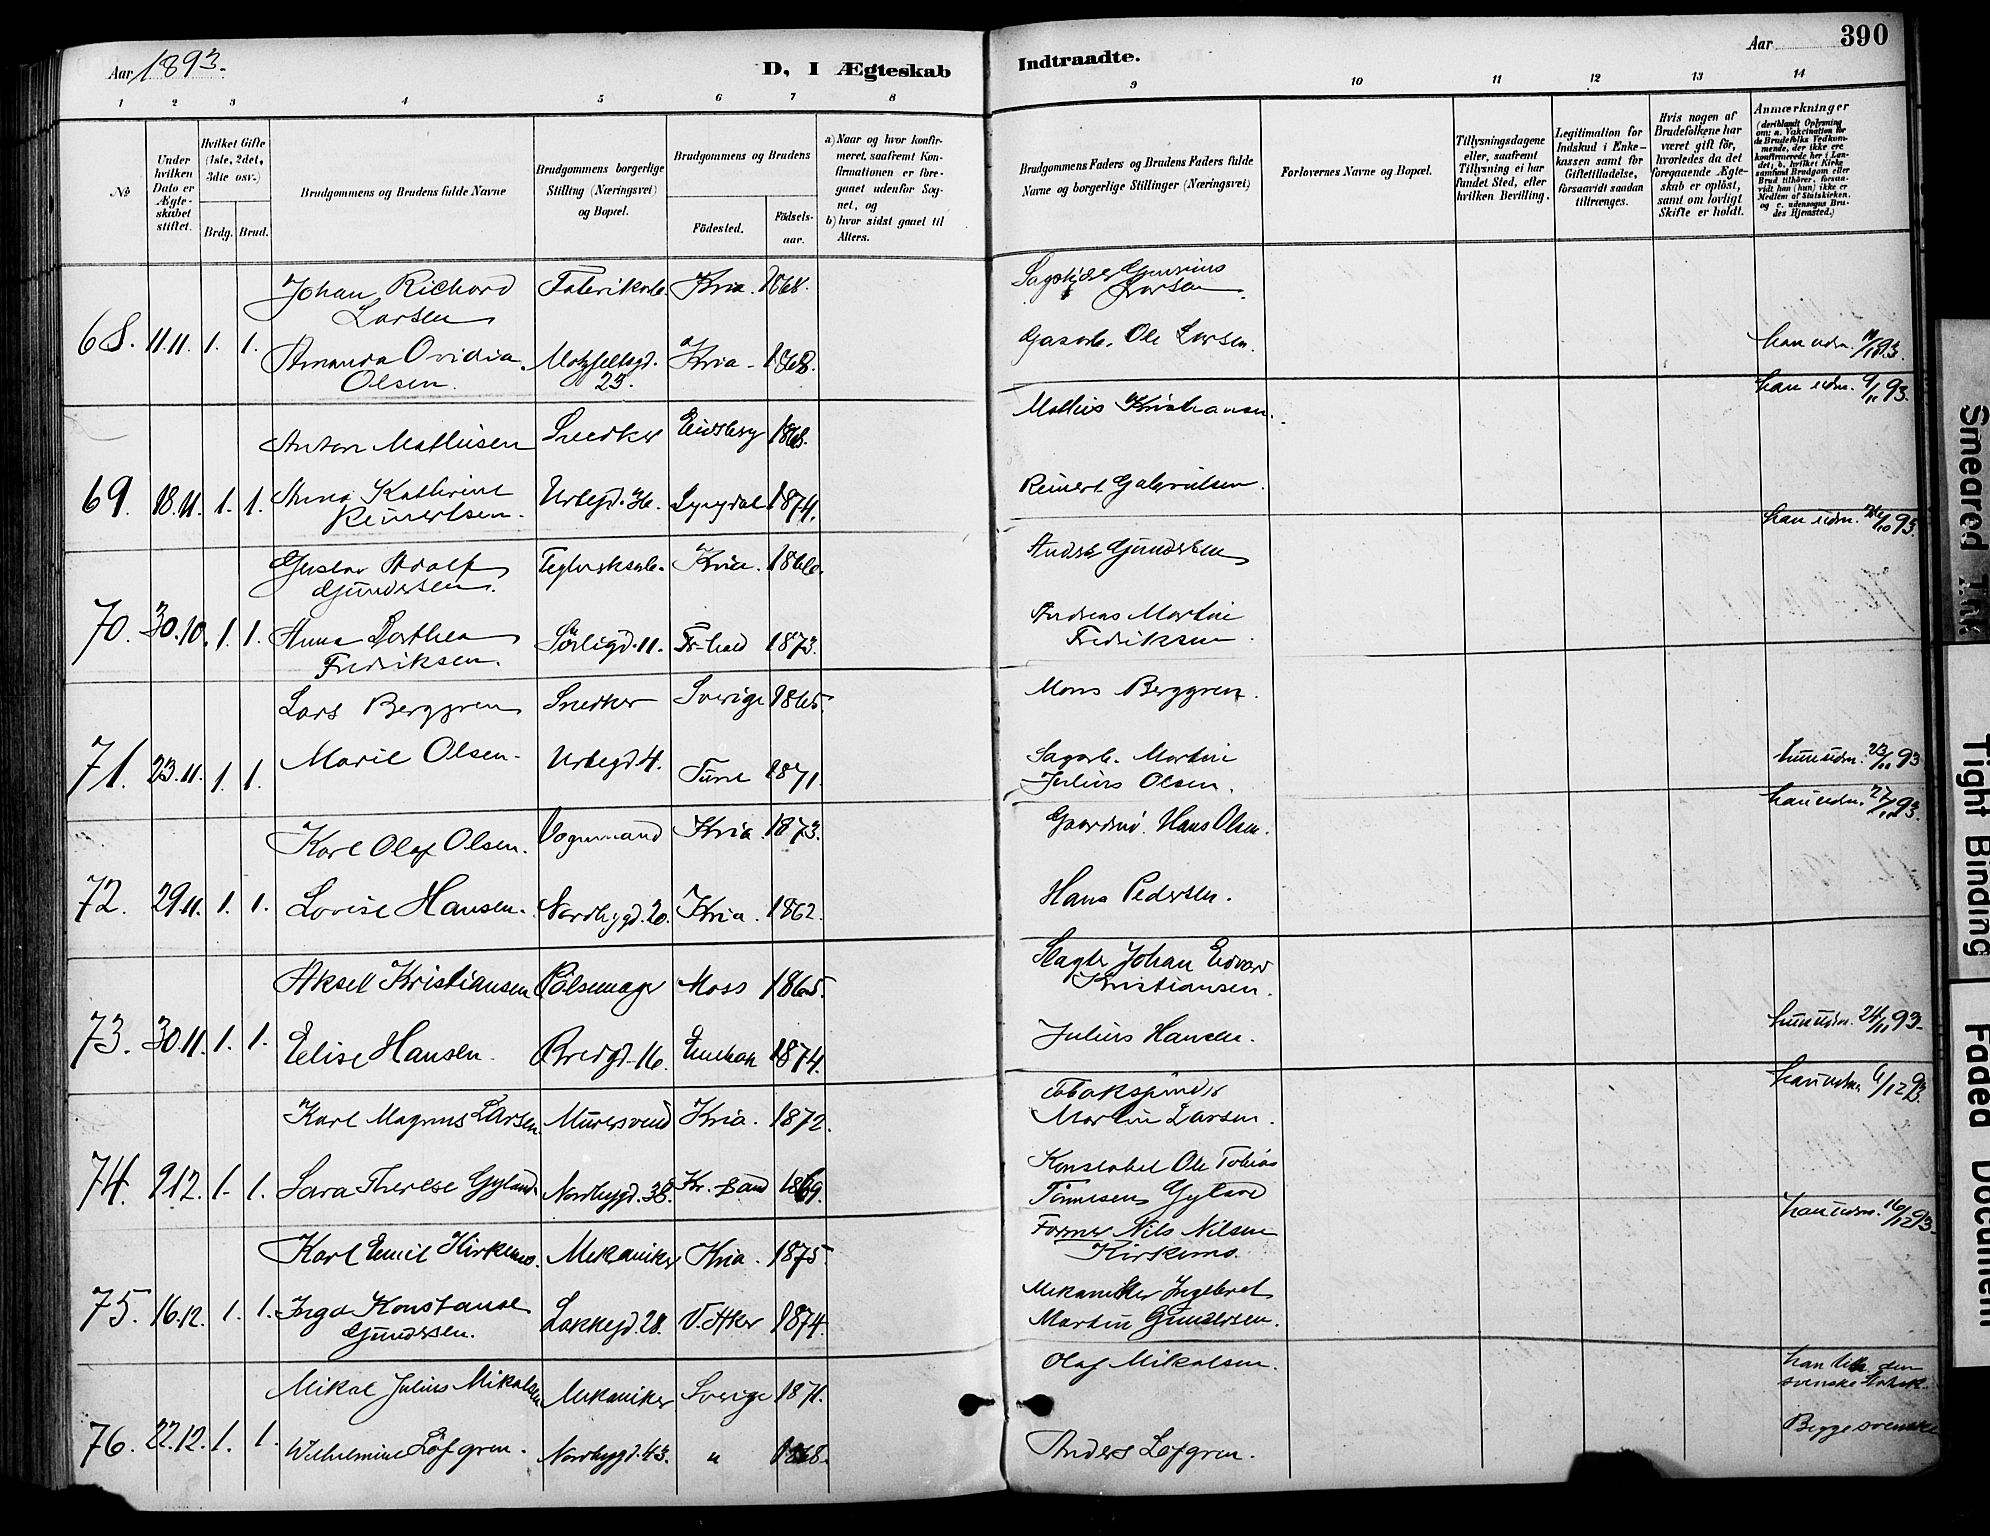 Aar 1893.
D, I Ægteskab
Indtraadte.
Aar
390
1 2 3 4 5 6 7 8
9 10 11 12 13 14
No
Under hvilken Dato er Ægteskabet stiftet.
Hvilket Gifte (1ste, 2det, 3die osv.)
Brdg. Brud.
Brudgommens og Brudens fulde Navne
Brudgommens borgerlige Stilling (Næringsvei) og Bopæl.
Brudgommens og Brudens
Födested.
Födsels-aar.
a) Naar og hvor konfirmeret, saafremt Konfirmationen er foregaaet udenfor Sognet, og
b) hvor sidst gaaet til Alters.
Brudgommens Faders og Brudens Faders fulde Navne og borgerlige Stillinger (Næringsvei)
Forlovernes Navne og Bopæl.
Tillysningsdagene eller, saafremt Tillysning ei har fundet Sted, efter hvilken Bevilling.
Legitimation for Indskud i Enkekassen samt for Giftetilladelse, forsaavidt saadan tiltrænges.
Hvis nogen af Brudefolkene har været gift för, hvorledes da det foregaaende Ægteskab er oplöst, samt om lovligt Skifte er holdt.
Anmærkninger
(deriblandt Oplysning om: a. Vakcination for de Brudefolks Vedkommende, der ikke ere konfirmerede her i Landet, b. hvilket Kirkesamfund Brudgom eller Brud tilhörer, forsaavidt han (hun) ikke er Medlem af Statskirken, og c. udensogns Brudes Hjemsted.)
68. 11.11. 1. 1.
Johan Richard Larsen Fabrikarb. Kria. 1868.
Larsen
Gasarb. Ole Larsen.
Amanda Ovidia Olsen. Motzfeltsgd. 23. Kria 1868.
han udm. 93.
69. 18.11. 1. 1.
Anton Mathisen Snedker Eidsberg 1868.
Mathis Kristiansen.
han udm. 9/11 93.
Anna Kathrine Reinertsen. Urtegd. 36. Lyngdal 1874.
Reinert Gabrielsen.
70. 30.10. 1. 1.
Gustav Adolf Gundersen. Teglverksarb. Kria. 1866.
Gundersen
han udm. 93
Anna Dorthea Fredriksen. Sörligd. 11. Fr-hald 1873.
Andreas Martin Fredriksen
71. 23.11. 1. 1.
Lars Berggren Snedker Sverige 1865.
Mons Berggren.
Marie Olsen. Urtegd 4. Tune 1871.
Sagarb. Martin Julius Olsen.
hun udm. 23/11 93
72. 29.11. 1. 1.
Karl Olaf Olsen. Vognmand Kria. 1873.
Hans Olsen.
han udm. 93.
Lovise Hansen. Nordbygd. 20. Kria. 1862.
Hans Pedersen.
73. 30.11. 1. 1.
Aksel Kristiansen Pölsemager Moss 1865.
Slagter Johan Edvard Kristiansen.
Elise Hansen. Bredgd. 16. 1874.
Julius Hansen.
hun udm. 93.
74. 9.12. 1. 1.
Karl Magnus Larsen. Murersvend Kria. 1872.
Tobakspinder Martin Larsen.
han udm. 6/12 93.
Sara Therese Gyland. Nordbygd. 38. Kr. sand 1869.
Konstabel Ole Tobias Tönnesen Gyland
75. 16.12. 1. 1.
Karl Emil Kirkemo. Mekaniker Kria. 1875.
Former Nils Nilsen Kirkemo.
han udm. 16/12 93.
Inga Konstanse Gundersen. Lakkegd. 28. V. Aker 1874.
Mekaniker Ingebret Martin Gundersen.
76. 22.12. 1. 1.
Mikal Julius Mikalsen Mekaniker Sverige 1871.
Olaf Mikalsen.
han den svenske
Wilhelmine Löfgren. Nordbygd. 43. " 1868.
Anders Löfgren.
Begge svenske
Smeared Ink
Tight Binding
Faded Document